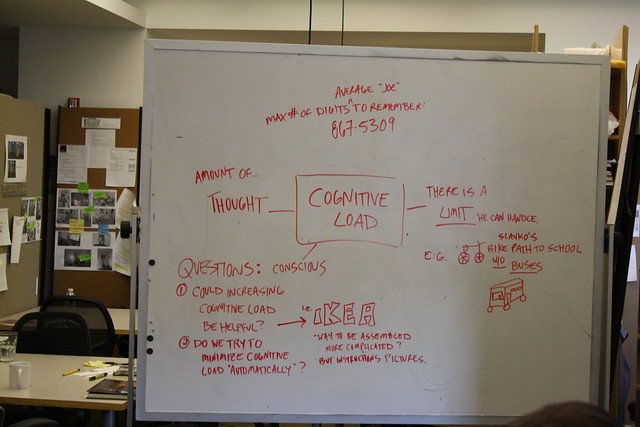 AVERAGE "JOE"
MAX # OF DIGITS TO REMEMBER:
867-5309
AMOUNT OF...
THOUGHT
COGNITIVE
LOAD
THERE IS A
LIMIT WE CAN HANDLE
E.G.
SLAVKO'S
BIKE PATH TO SCHOOL
W/O
BUSES
QUESTIONS: CONSCIOUS
1 COULD INCREASING
COGNITIVE LOAD
BE HELPFUL?
i.e. IKEA
"WAY TO BE ASSEMBLED
MORE COMPLICATED?
"BUT INSTRUCTIONS PICTURES.
2 DO WE TRY TO
MINIMIZE COGNITIVE
LOAD "AUTOMATICALLY"?